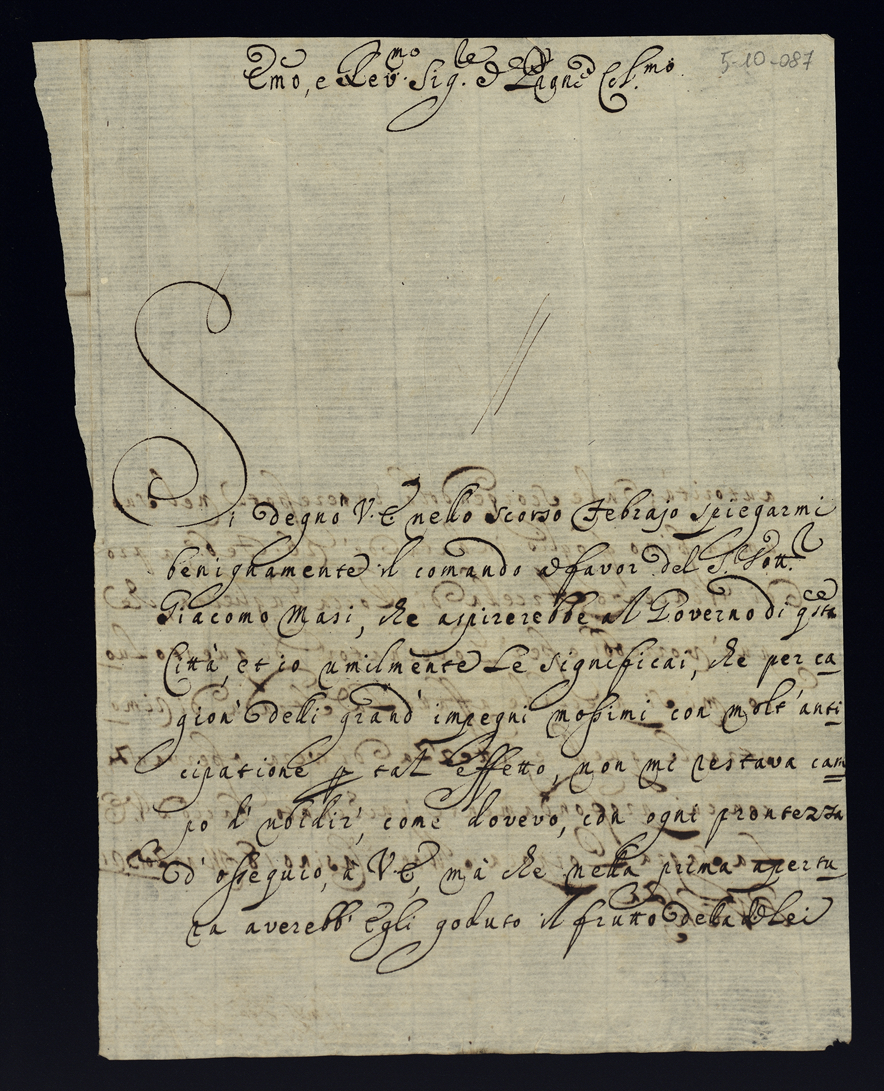 Emo, e Rev.mo Sig.re e Pne Col.mo
5-10-087
Si degnò V.E. nello scorso Febrajo spiegarmi
benignamente il comando à favor del S. Dott.
Giacomo Masi, che aspirerebbe al Governo di q.sta
Città, et io umilmente Le significai, che per ca
gion delli grand' impegni mossimi con molt' anti
cipatione p tal effetto, non mi restava cam
po d' ubidir, come dovevo, con ogni prontezza
d' ossequio, à V.E., mà che nella prima apertu
ra averebb' Egli goduto il frutto della di Lei